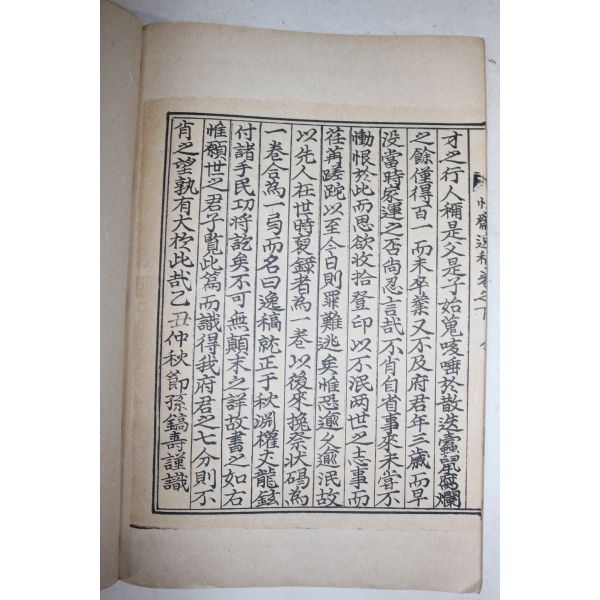 才之行人稱是父是子始蒐咳唾於散迭蠹鼠腐爛
之餘僅得百一而未卒業又不及府君年三歲而早
没當時家運之否尙忍言哉不肖自省事來未嘗不
慟恨於此而思欲收拾登印以不泯兩世之志事而
荏苒蹉跎以至今日則罪難逃矣惟恐愈久愈泯故
以先人在世時裒錄者為一卷以後來挽祭狀碣為
一卷合為一弓而名曰逸稿就正于秋淵權丈龍鉉
付諸手民功將訖矣不可無顛末之詳故書之如右
惟願世之君子覧此篇而識得我府君之七分則不
肖之望孰有大於此哉乙丑仲秋節孫鎬壽謹識
齋逸稿卷之下